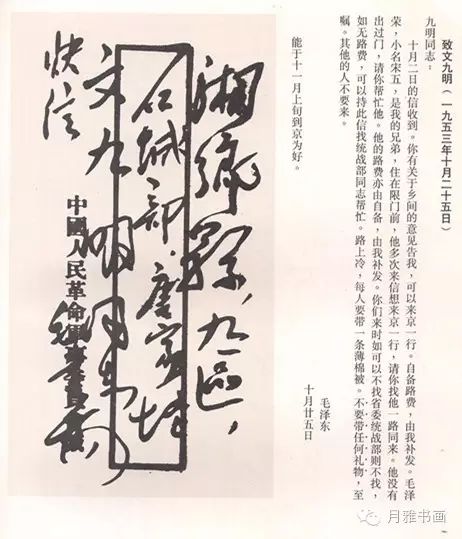 致文九明（一九五三年十月二十五日）
九明同志：
十月二日的信收到。你有关于乡间的意见告我，可以来京一行。自备路费，由我补发。毛泽
荣，小名宋五，是我的兄弟，住在限门前，他多次来信想来京一行，请你找他一路同来。他没有
出过门，请你帮忙他。他的路费亦由自备，由我补发。你们来时如可以不找省委统战部则不找，
如无路费，可以持此信找统战部同志帮忙。路上冷，每人要带一条薄棉被。不要带任何礼物，至
嘱。其他的人不要来。
毛泽东
十月廿五日
能于十一月上旬到京为好。
湘鄉縣，九區，
石城唐家
文九明同志
快信
中國人民革命
月雅书画